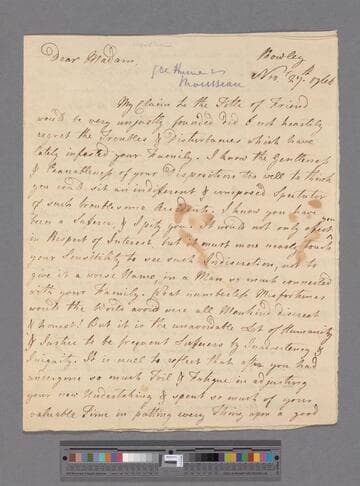 Dear Madam,
Rowley
Novr 27th. 1766
re Hume &
Rousseau
My Claim to the Title of Friend
would be very unjustly founded did I not heartily
regret the Troubles & Disturbances which have
lately infested your Family. I know the Gentleness
& Peaceableness of your Disposition too well to think
you could sit an indifferent & composed Spectator
of such troublesome Accidents. I know you have
been a Sufferer, & I pity you. It would not only affect you
in Respect of Interest, but it must more nearly touch
your Sensibility to see such Indiscretion, not to
give it a worse Name, in a Man so much connected
with your Family. What numberless Misfortunes
would the World avoid were all Mankind discreet
& honest! But it is the unavoidable Lot of Humanity
& Justice to be frequent Sufferers by Inadvertency &
Iniquity. It is cruel to reflect that after you had
undergone so much Toil & Fatigue in adjusting
your new Undertaking & spent so much of your
valuable Time in putting every Thing upon a good